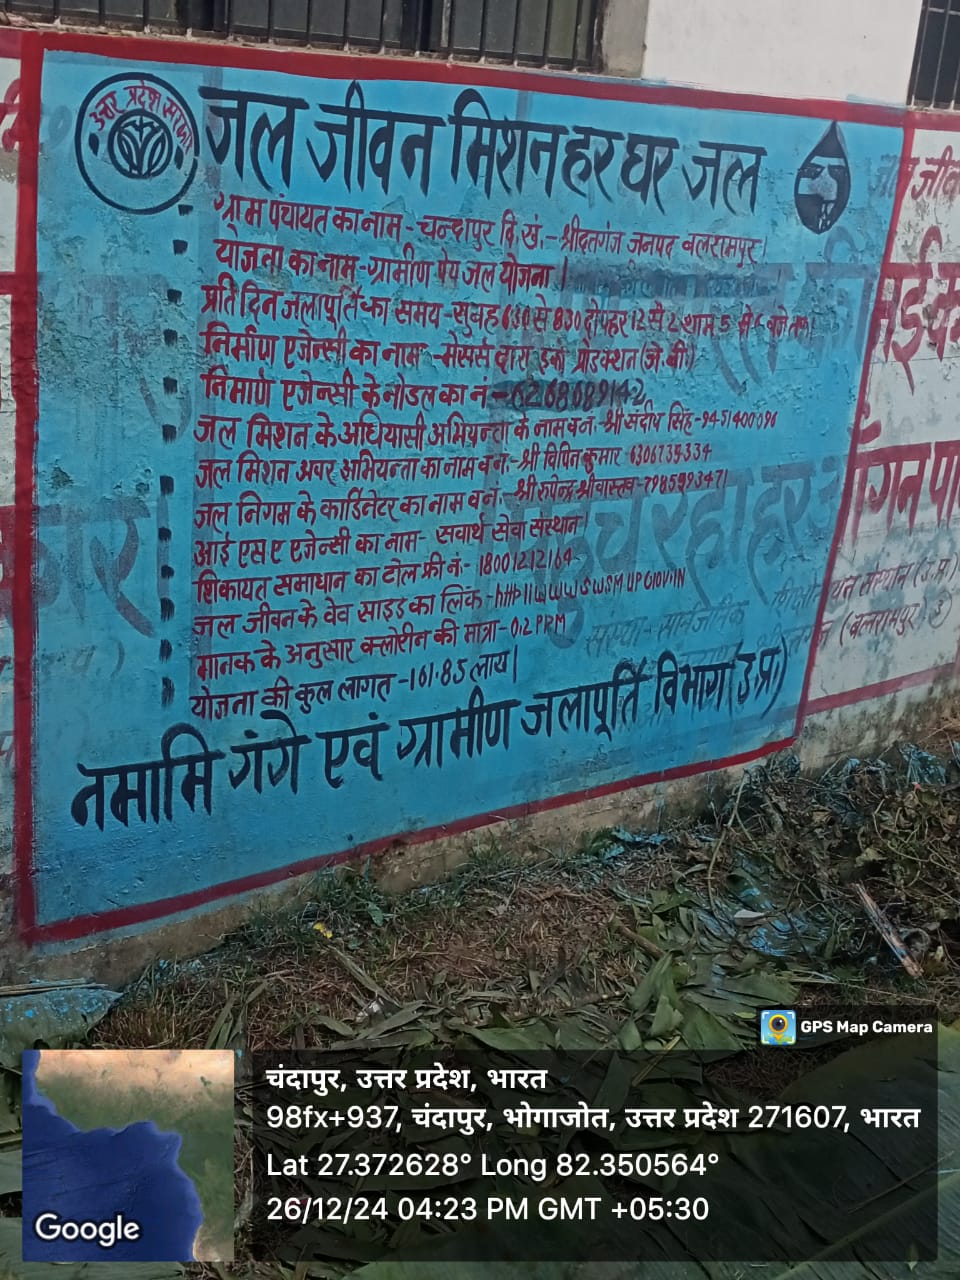 उत्तर प्रदेश सरकार
जल जीवन मिशन हर घर जल
ग्राम पंचायत का नाम - चन्दापुर वि.खं.- श्रीदत्तगंज जनपद बलरामपुर।
योजना का नाम - ग्रामीण पेय जल योजना।
प्रति दिन जलापूर्ति का समय - सुबह 630 से 830 दोपहर 12 से 2 शाम 5 से 6 बजे तक।
निर्माण एजेन्सी का नाम - मेसर्स इको प्रोडक्शन (जे.बी.)
निमार्ण एजेन्सी के नोडल का नं - 6268689142
जल मिशन के अधियासी अभियन्ता के नाम व नं. श्री संदीप सिंह - 9451400096
जल मिशन अवर अभियन्ता का नाम व नं - श्री विपिन कुमार 6306739334
जल निगम के कार्डिनेटर का नाम व नं. श्री रुपेन्द्र श्रीवास्तव - 7985993471
आई एस ए एजेन्सी का नाम - सवार्थ सेवा संस्थान।
शिकायत समाधान का टोल फ्री नं. - 18001212164
जल जीवन के वेव साइड का लिंक - http//WWW.SWSM.UP.GOV.IN
मानक के अनुसार क्लोरीन की मात्रा - 0.2 PRM
योजना की कुल लागत - 161.85 लाख।
नमामि गंगे एवं ग्रामीण जलापूर्ति विभाग (उ.प्र.)
GPS Map Camera
चंदापुर, उत्तर प्रदेश, भारत
98fx+937, चंदापुर, भोगाजोत, उत्तर प्रदेश 271607, भारत
Lat 27.372628° Long 82.350564°
26/12/24 04:23 PM GMT +05:30
Google